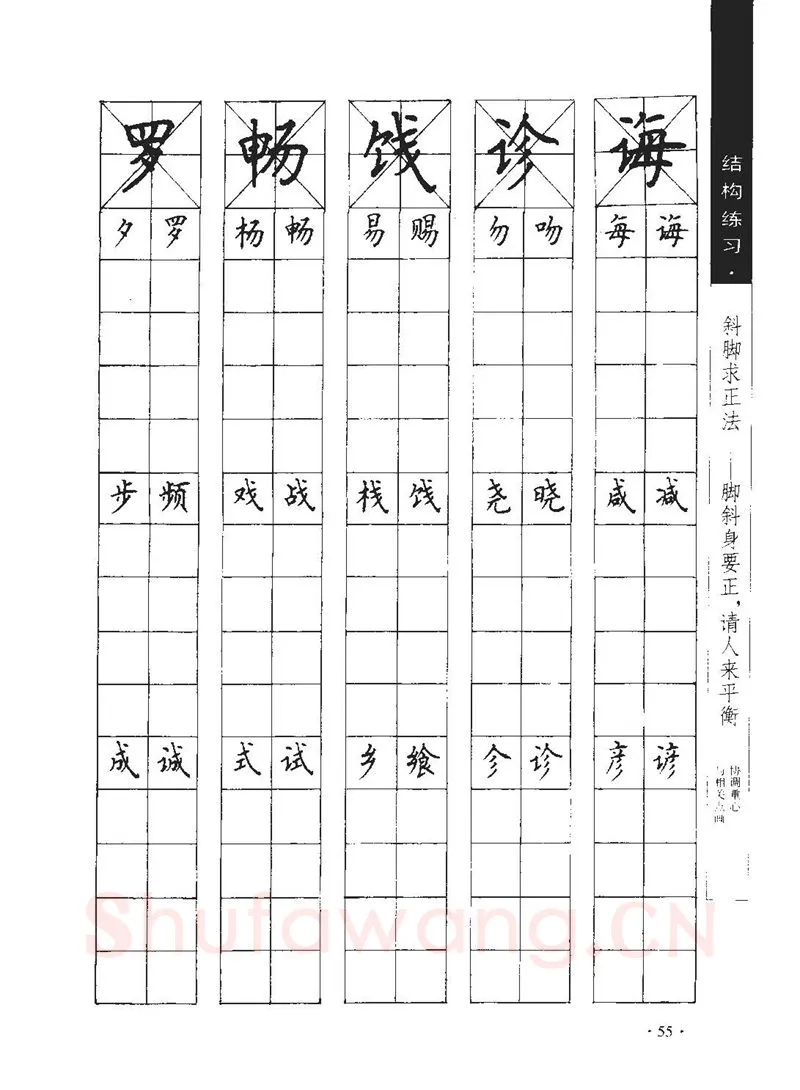 结构练习·
斜脚求正法——脚斜身要正，请人来平衡
协调重心
与相关点画
罗 畅 饯 诊 诲
夕 罗 杨 畅 易 赐 勿 吻 每 诲
步 频 戏 战 栈 饯 尧 晓 咸 减
成 诚 式 试 乡 飨 㐱 诊 彦 谚
Shufawang.CN
·55·